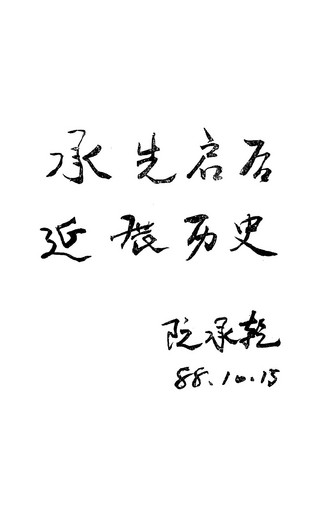 承先启后
延展历史
阮承乾
88.10.15